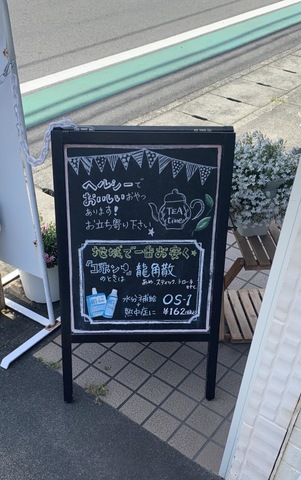 ヘルシーで
おいしいおやつ
あります!
お立ち寄り下さい
TEA
time
地域で一番お安く☆
「コホン!」
のときは
龍角散
あめ、スティック、トローチ
etc
水分補給
+
熱中症に
OS-1
¥162(税込)